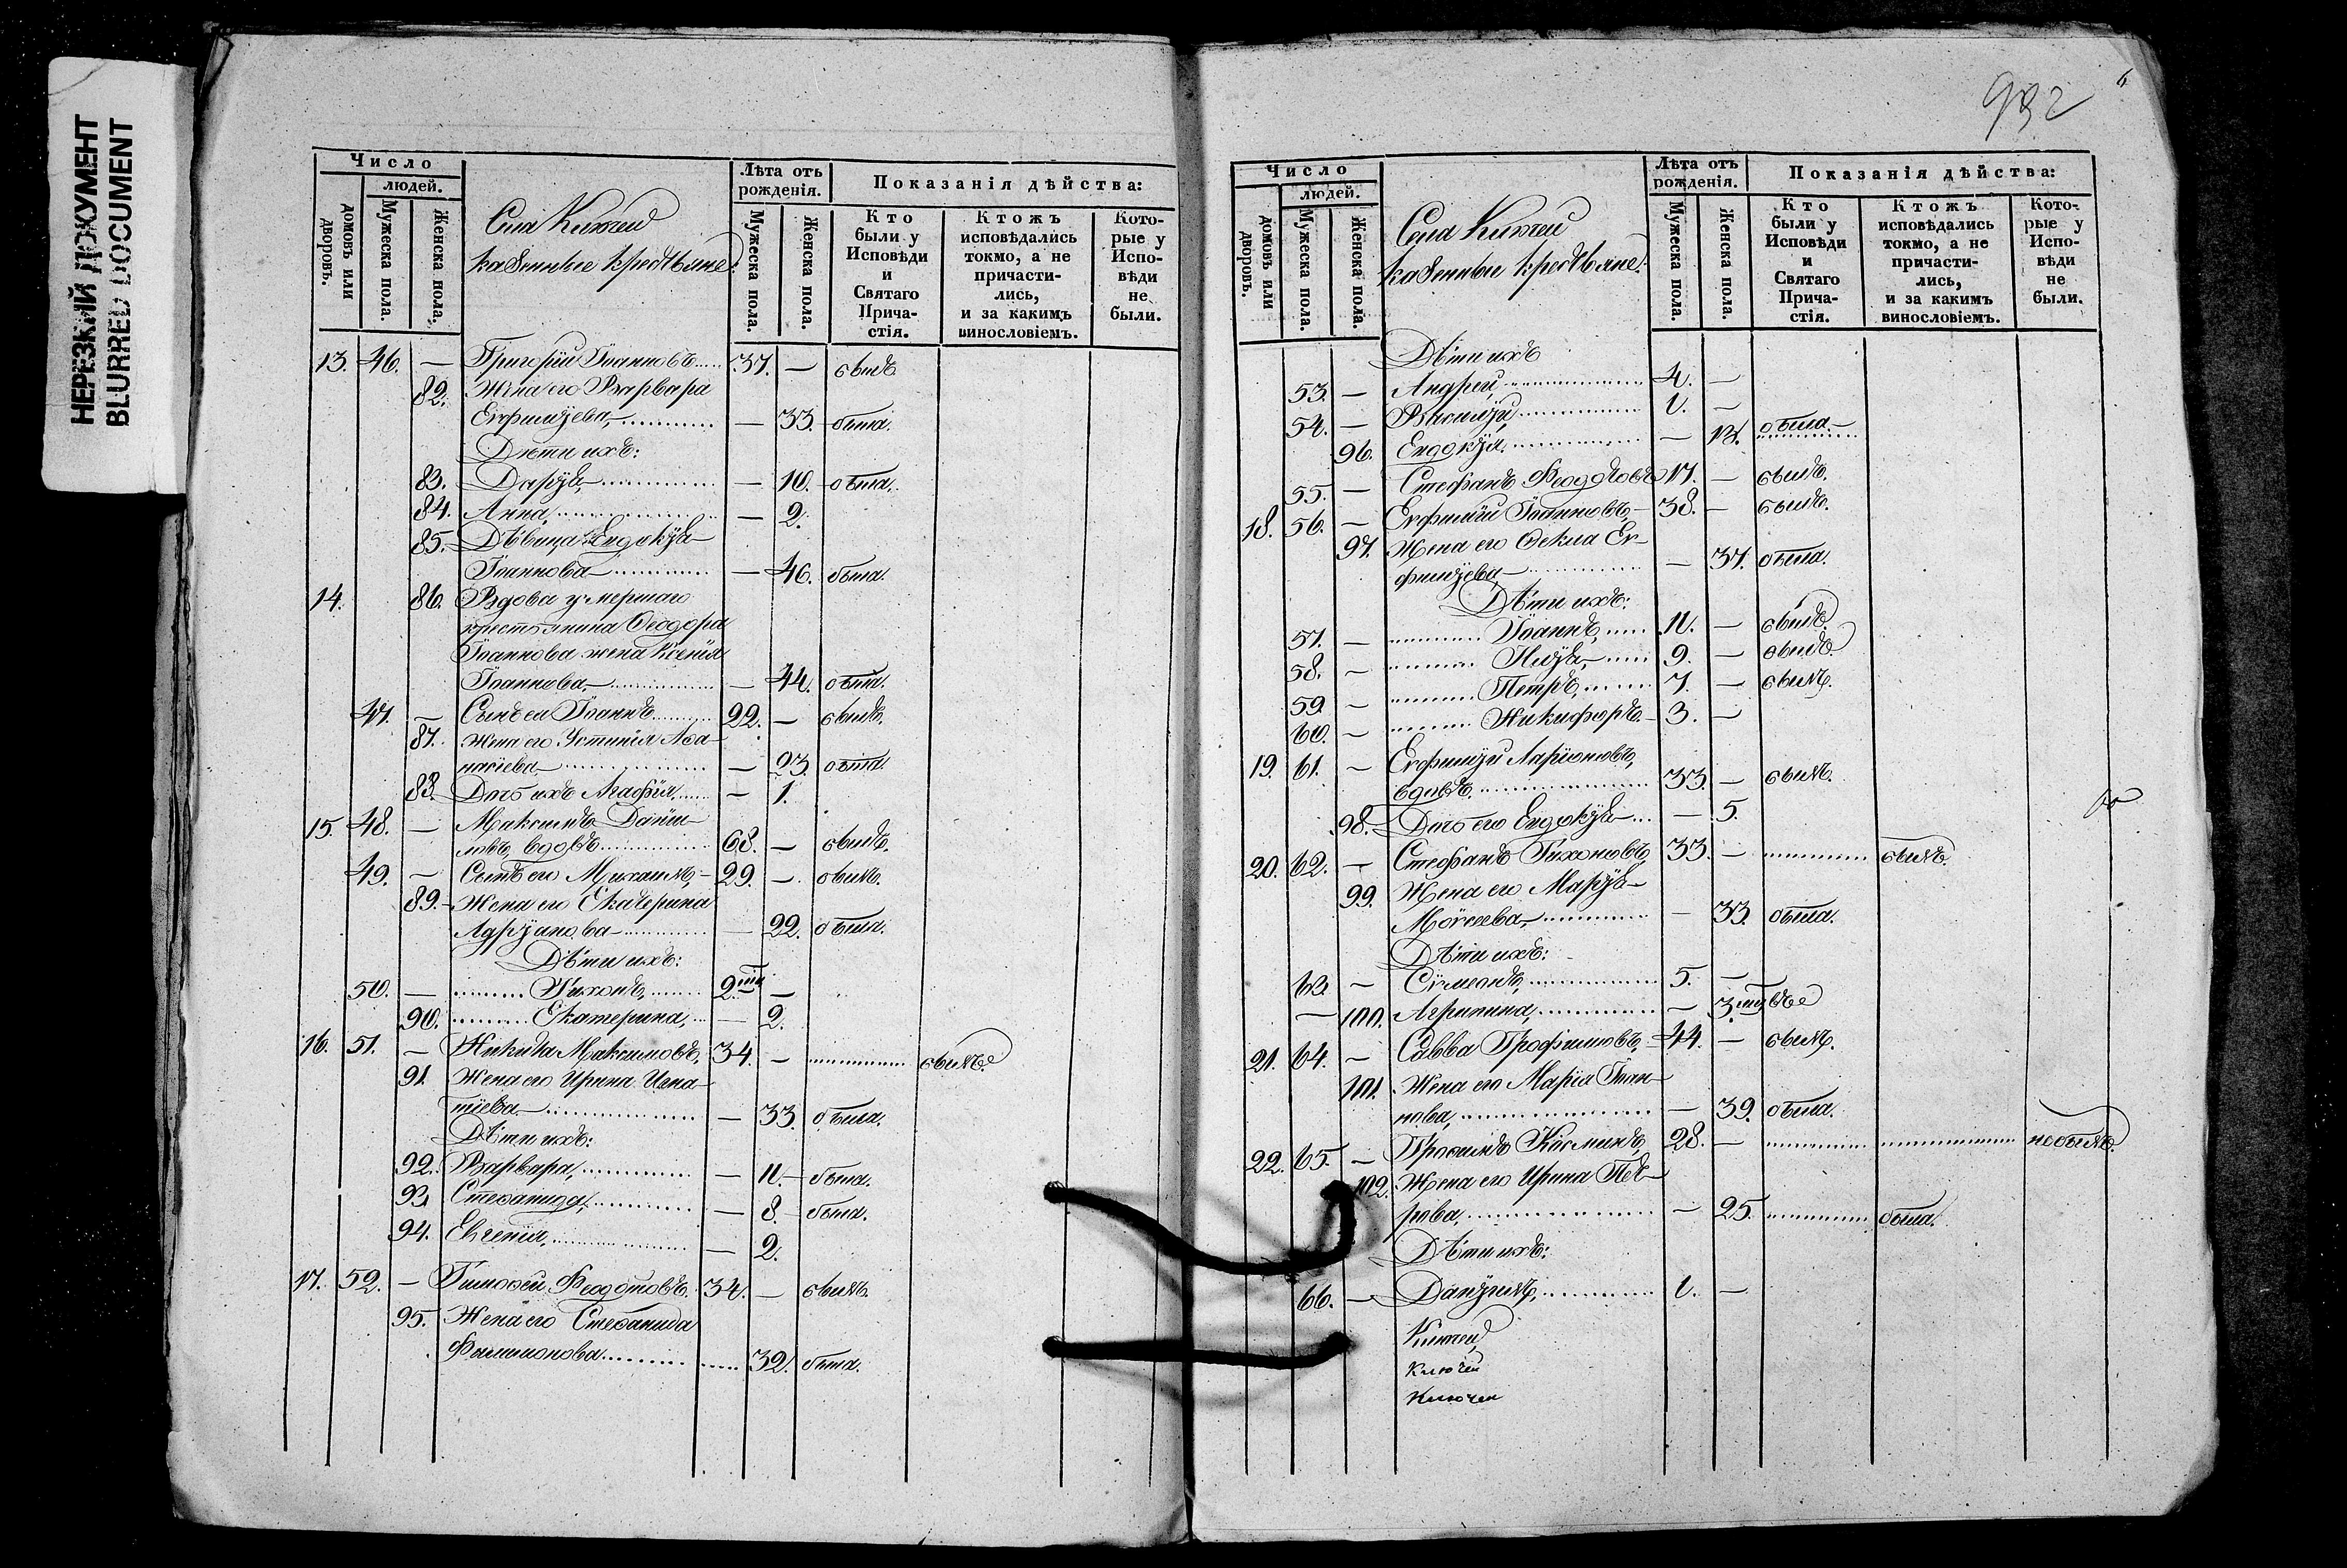 НЕРЕЗКИЙ ДОКУМЕНТ
BLURRED DOCUMENT
Число
людей.
домовъ или дворовъ.
Мужеска пола.
Женска пола.
Села
казенные крестьяне.
Лѣта отъ рожденія.
Мужеска пола.
Женска пола.
Показанія дѣйства:
Кто были у Исповѣди и Святаго Причастія.
Ктожъ исповѣдались токмо, а не причастились, и за какимъ винословіемъ.
Которые у Исповѣди не были.
13. 46. — Григорій Іоанновъ 37. — былъ
82. Жена его Варвара
Евфиміева, — 33. была.
Дѣти ихъ:
83. Дарія, — 10. была.
84. Анна, — 2.
85. Дѣвица Евдокія
Іоаннова — 46. была.
14. 86. Вдова умершаго
крестьянина Ѳеодора
Іоаннова жена Ксенія
Іоаннова, — 44. была.
47. — Сынъ ея Іоаннъ 22. — былъ.
87. Жена его Устинія Аѳа-
насіева — 23. была.
88. Дочь ихъ Агафія, — 1.
15. 48. — Максимъ Дании-
ловъ, вдовъ 68. — былъ.
49. — Сынъ его Михаилъ, 29. — былъ.
89. Жена его Екатерина
Адріанова — 22. была.
Дѣти ихъ:
50. — Тихонъ, 2. —
90. Екатерина, — 2.
16. 51. — Никита Максимовъ, 34. — былъ.
91. Жена его Ирина Игна-
тіева — 33. была.
Дѣти ихъ:
92. Варвара, — 11. была.
93. Стефанида, — 8. была.
94. Евгенія, — 2.
17. 52. — Тимоѳей Ѳеодотовъ. 34. — былъ.
95. Жена его Стефанида
Филимонова 32. была.
932
6
Число
людей.
домовъ или дворовъ.
Мужеска пола.
Женска пола.
Села
казенные крестьяне.
Лѣта отъ рожденія.
Мужеска пола.
Женска пола.
Показанія дѣйства:
Кто были у Исповѣди и Святаго Причастія.
Ктожъ исповѣдались токмо, а не причастились, и за какимъ винословіемъ.
Которые у Исповѣди не были.
Дѣти ихъ
53. — Андрей, 4. —
54. — Василій, 1. —
96. Евдокія. — 12. была.
55. — Стефанъ Ѳеодотовъ 17. — былъ.
18. 56. — Евфимій Іоанновъ, 38. — былъ.
97. Жена его Ѳекла Ев-
фиміева, — 37. была.
Дѣти ихъ:
57. — Іоаннъ, 11. — былъ.
58. — Илія, 9. — былъ.
59. — Петръ, 7. — былъ.
60. — Никифоръ. 3. —
19. 61. — Евфимій Ларіоновъ,
вдовъ. 33. — былъ.
98. Дочь его Евдокія — 5.
20. 62. — Стефанъ Тихоновъ, 33. — былъ.
99. Жена его Марія
Моисеева, — 33. была.
Дѣти ихъ:
63. — Сѵмеонъ, 5. —
— 100. Агрипина, — 3.
21. 64. — Савва Трофимовъ, 44. — былъ.
101. Жена его Марія Іоан-
нова, — 39. была.
22. 65. — Козминъ, 28. — не былъ.
102. Жена его Ирина Пет-
рова, — 25. была.
Дѣти ихъ:
66. — Даніилъ, 1. —
Ключей
Ключей